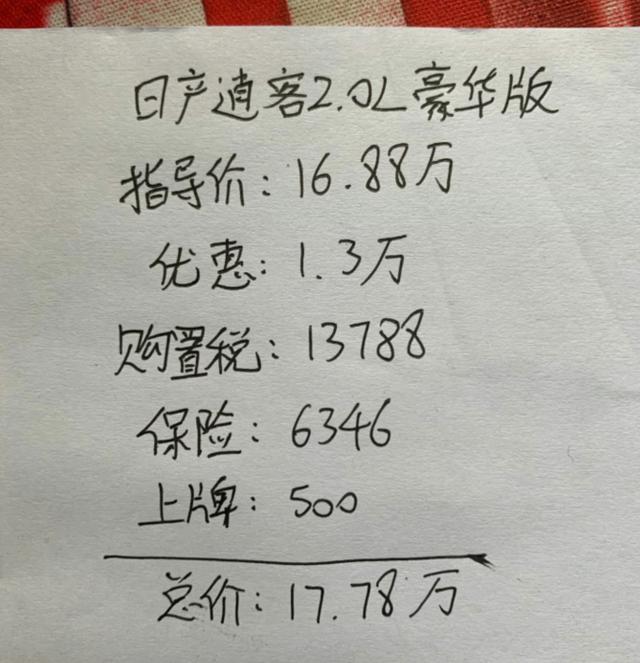 日产逍客2.0L豪华版
指导价:16.88万
优惠:1.3万
购置税:13788
保险:6346
上牌:500
总价:17.78万